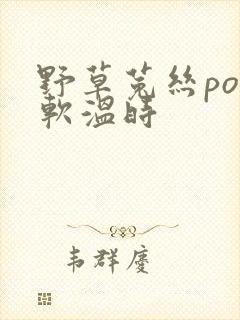 野草菟絲po
軟溫時
韦群慶